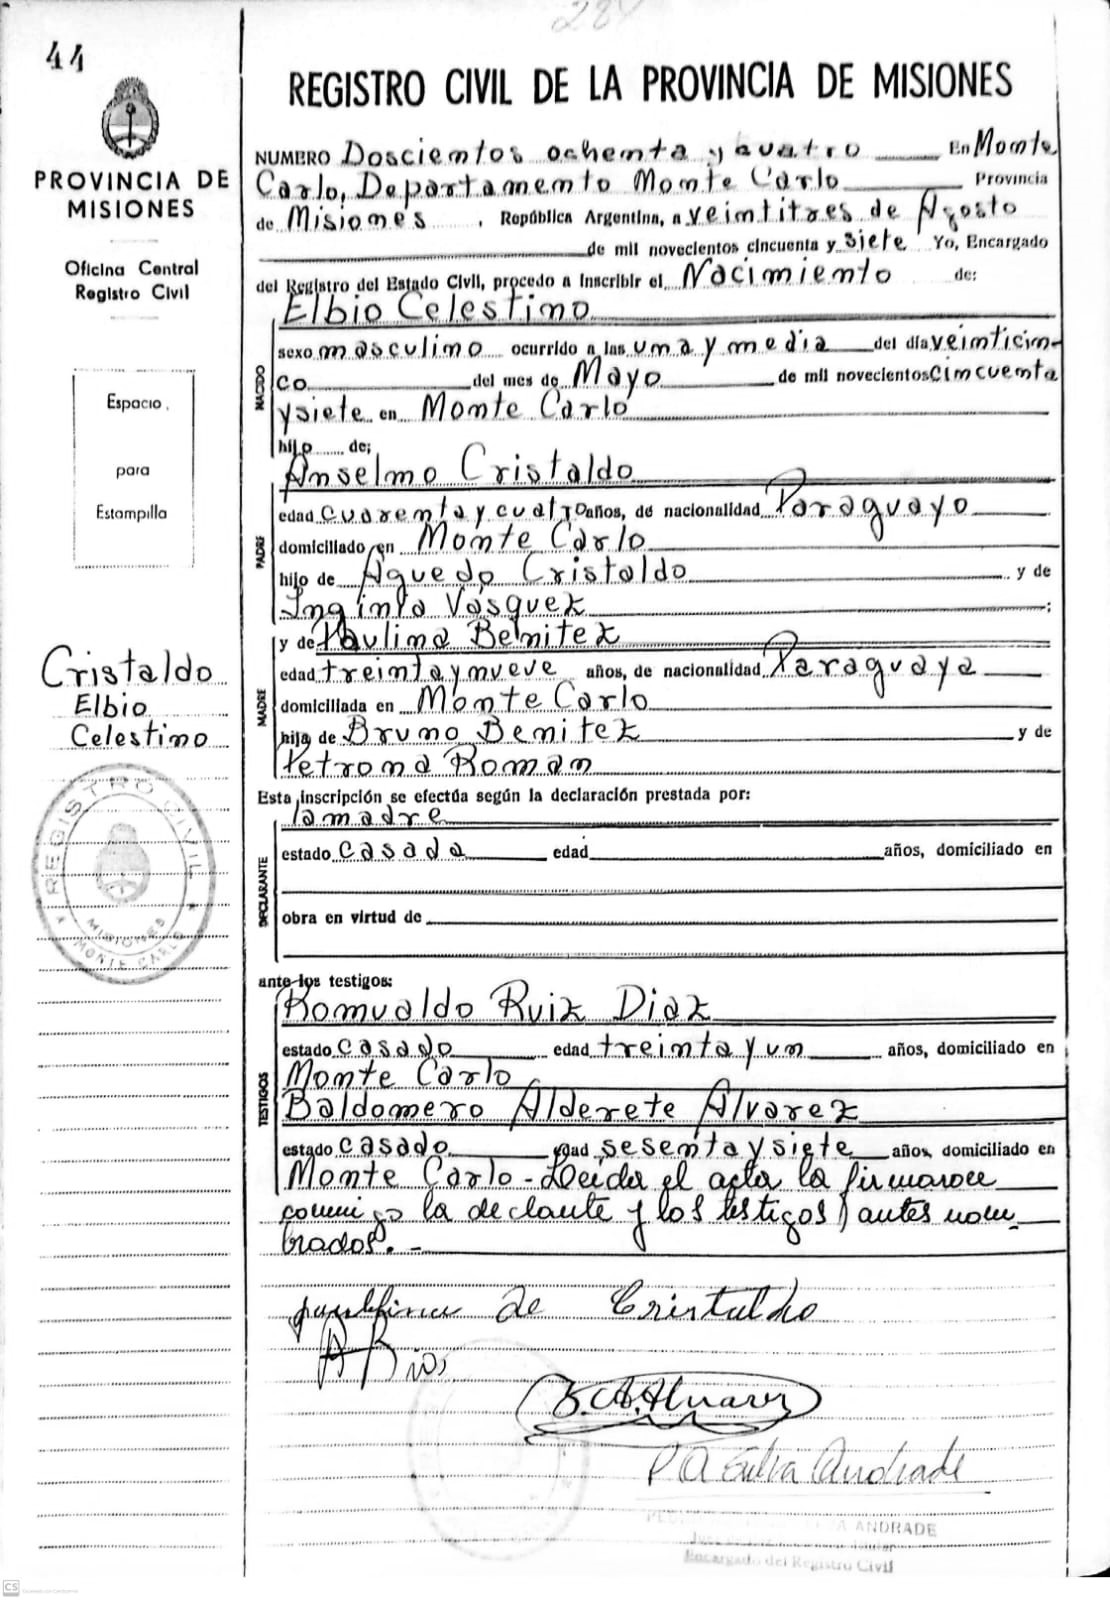 284
44
REGISTRO CIVIL DE LA PROVINCIA DE MISIONES
PROVINCIA DE
MISIONES
Oficina Central
Registro Civil
Espacio
para
Estampilla
Cristaldo
Elbio
Celestino
REGISTRO CIVIL
MISIONES
MONTE CARLO
NUMERO Doscientos ochenta y cuatro En Monte
Carlo, Departamento Monte Carlo Provincia
de Misiones, República Argentina, a veintitres de Agosto
de mil novecientos cincuenta y siete Yo, Encargado
del Registro del Estado Civil, procedo a inscribir el Nacimiento de:
Elbio Celestino
NACIDO
sexo masculino ocurrido a las una y media del día veinticin-
co del mes de Mayo de mil novecientos cincuenta
y siete en Monte Carlo
hijo de;
Anselmo Cristaldo
PADRE
edad cuarenta y cuatro años, de nacionalidad Paraguayo
domiciliado en Monte Carlo
hijo de Aguedo Cristaldo y de
Vásquez;
y de Paulina Benitez
MADRE
edad treinta y nueve años, de nacionalidad Paraguaya
domiciliada en Monte Carlo
hija de Bruno Benitez y de
Petrona Roman
Esta inscripción se efectúa según la declaración prestada por:
la madre
DECLARANTE
estado casada edad años, domiciliado en
obra en virtud de
ante los testigos:
Romualdo Ruiz Diaz
TESTIGOS
estado casado edad treinta y un años, domiciliado en
Monte Carlo
Baldomero Alderete Alvarez
estado casado edad sesenta y siete años, domiciliado en
Monte Carlo - Leída el acta la firmaron
conmigo la declante y los testigos antes nom-
brados. -
de Cristaldo
B. A. Alvarez
Silva Andrade
ANDRADE
Encargado del Registro Civil
CS